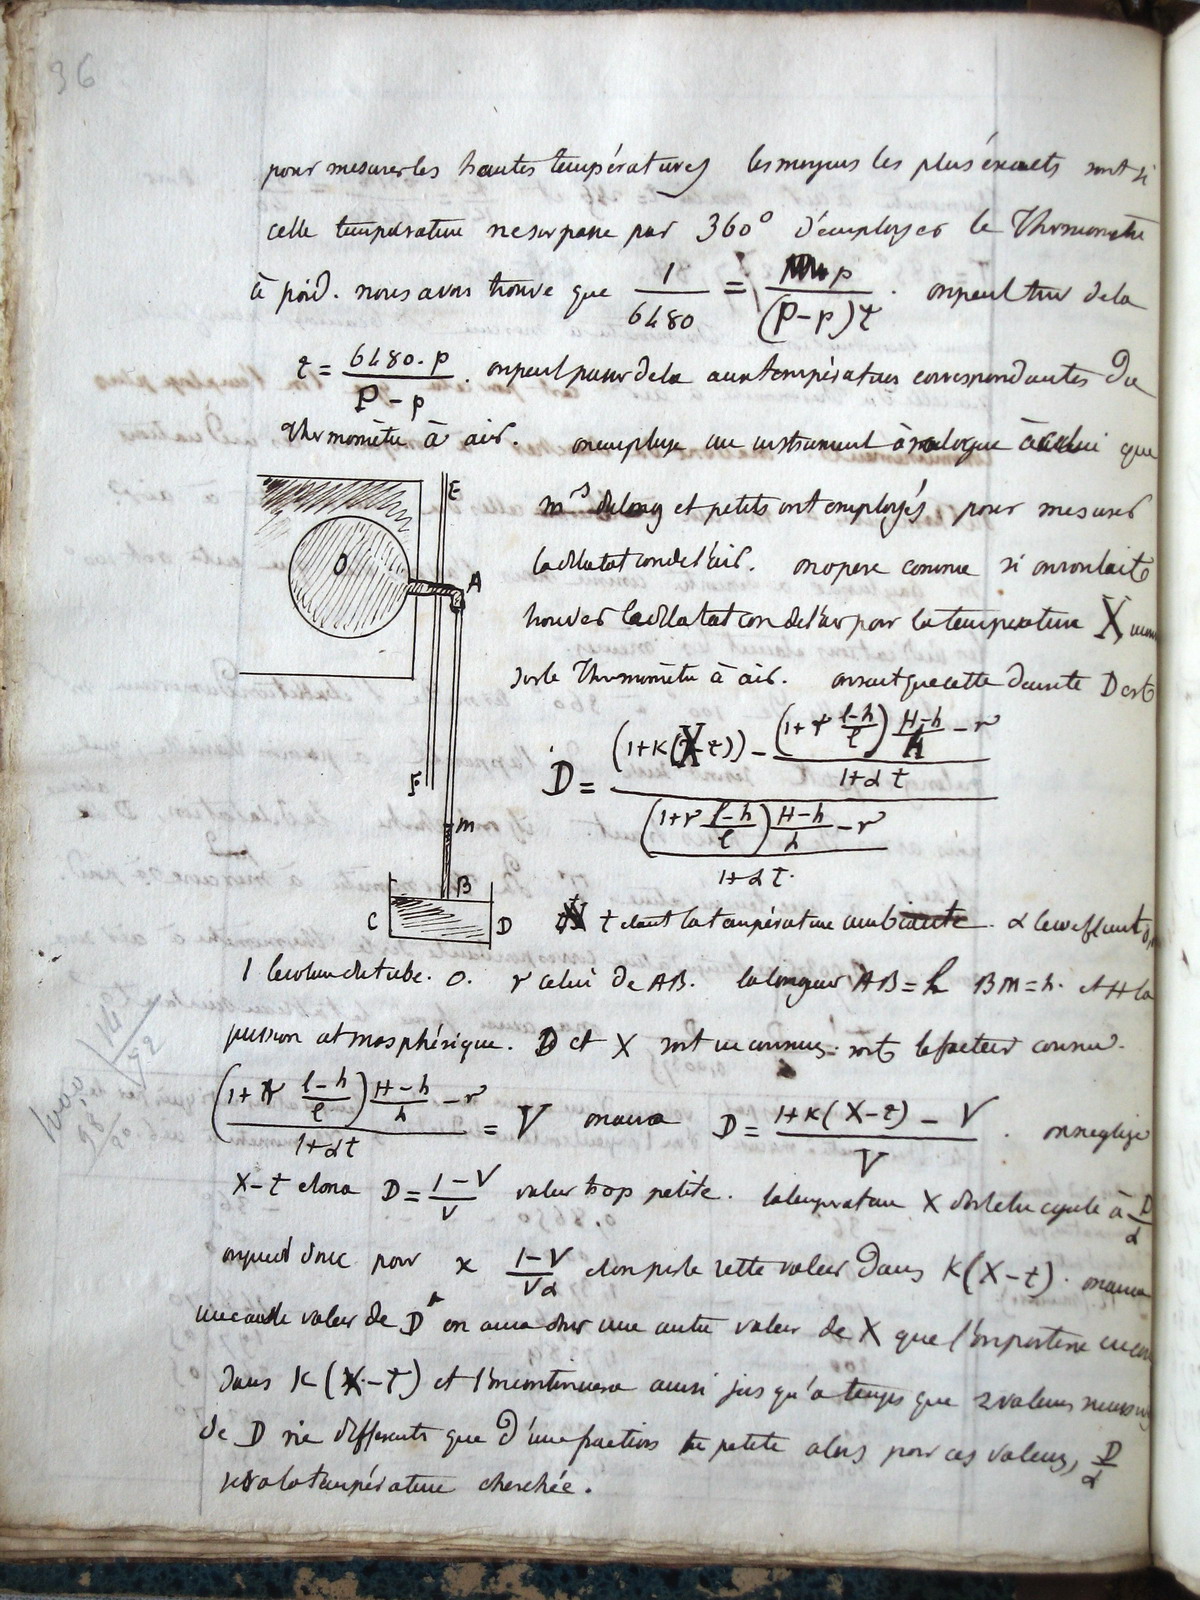 36
pour mesurer les hautes températures les moyens les plus éxacts sont si
celle température ne surpasse pas 360° d'employer le Thermomètre
à poid. nous avons trouvé que 1/6480 = p/(P-p)t . on peut tirer de la
t = 6480.p/P-p . on peut passer de la aux températures correspondantes du
Thermomètre à air. on employe un instrument analogue à celui que
E
mrs dulong et petits ont employés pour mesurer
O
la dilatation de l'air. on opere comme si on voulait
A
trouver la dilatation de l'air pour la température X
sur le Thermomètre à air. on sait que cette densité D est
D = ((1+K(X-t)) - ((1+r (l-h)/l) (H-h)/h - r)/(1+αt)) / (((1+r (l-h)/l) (H-h)/h - r)/(1+αt))
F
m
B
C D
t étant la température ambiante . α le coefficient
1 le volume du tube. O. r celui de AB. la longueur AB=l BM=h. et H la
pression atmosphérique. D et X sont inconnues. soit le facteur connu.
((1+r (l-h)/l) (H-h)/h - r)/(1+αt) = V on aura D = (1+K(X-t) - V)/V . on neglige
X-t et on a D = (1-V)/V valeur trop petite. la température X doit être égale à D/α
on prend donc pour x (1-V)/Vα et on porte cette valeur dans K(X-t). on aura
une autre valeur de D on aura donc une autre valeur de X que l'on portera
dans K(X-t) et l'on continuera ainsi jusqu'a temps que 2 valeurs
de D ne different que d'une fraction petite alors pour ces valeurs, D/α
sera la température cherchée.